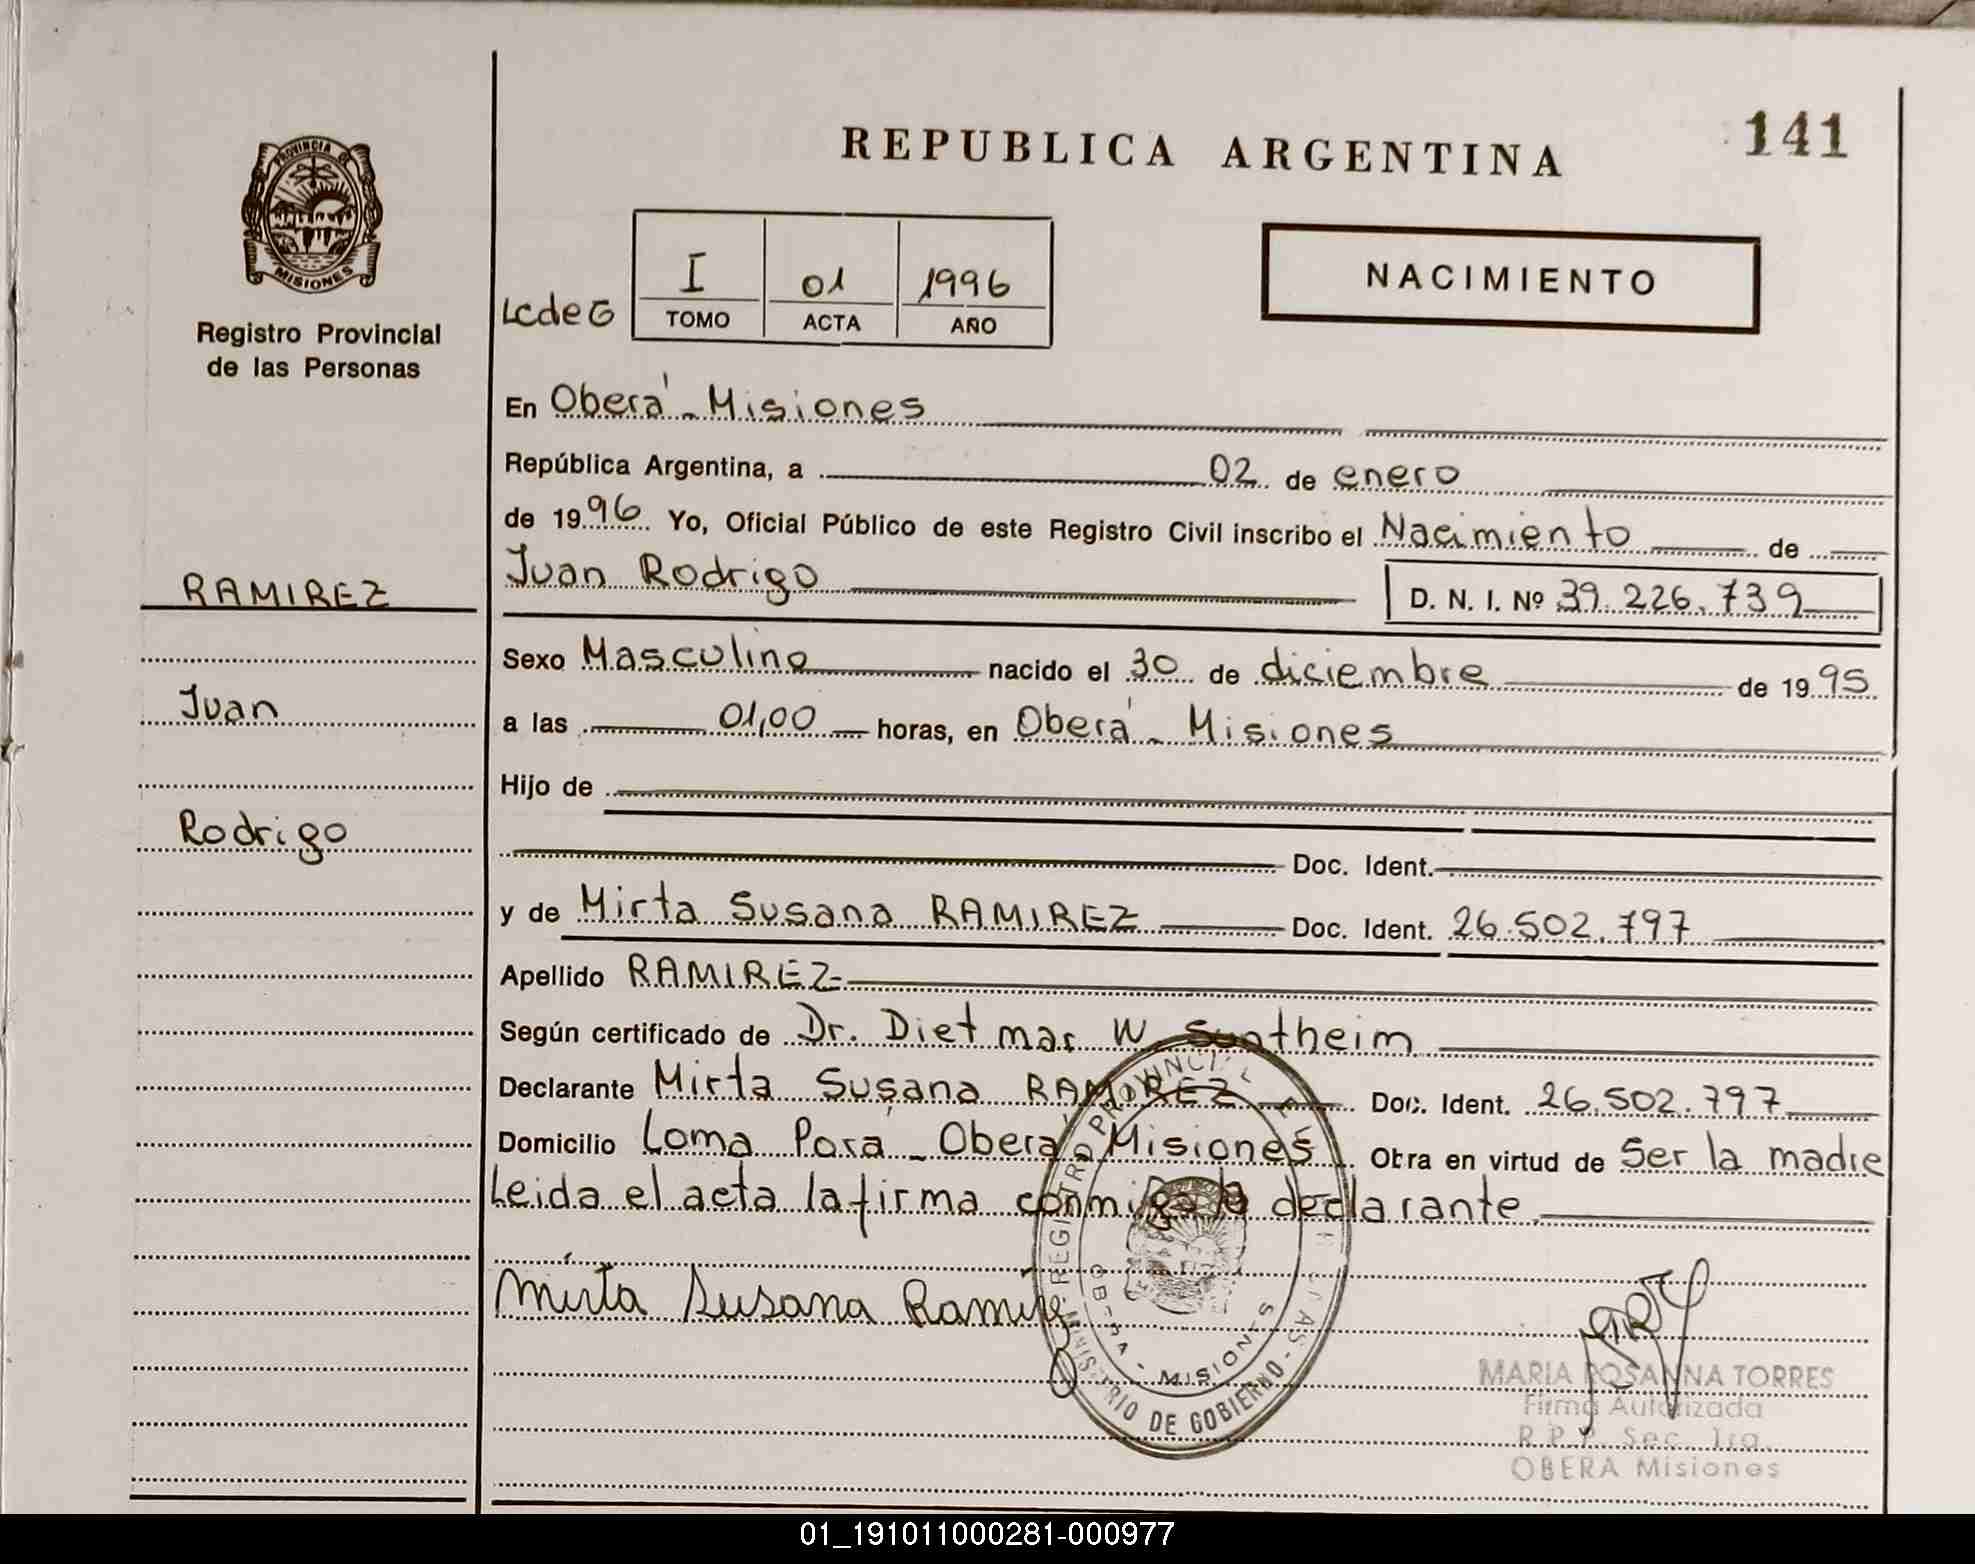 PROVINCIA DE
MISIONES
Registro Provincial
de las Personas
RAMIREZ
Juan
Rodrigo
REPUBLICA ARGENTINA
141
LcdeG
I 01 1996
TOMO ACTA AÑO
NACIMIENTO
En Oberá - Misiones
República Argentina, a 02 de enero
de 1996 Yo, Oficial Público de este Registro Civil inscribo el Nacimiento de
Juan Rodrigo D. N. I. Nº 39.226.739
Sexo Masculino nacido el 30 de diciembre de 1995
a las 01,00 horas, en Oberá - Misiones
Hijo de
Doc. Ident.
y de Mirta Susana RAMIREZ Doc. Ident. 26.502.797
Apellido RAMIREZ-
Según certificado de Dr. Dietmar W. Sontheim
Declarante Mirta Susana RAMIREZ Doc. Ident. 26.502.797
Domicilio Loma Porá - Oberá - Misiones Obra en virtud de Ser la madre
Leida el acta la firma conmigo la declarante
Mirta Susana Ramire
REGISTRO PROVINCIAL DE LAS
OBERA - MISIONES
MINISTERIO DE GOBIERNO
MARIA ROSANNA TORRES
Firma Autorizada
R.P.P. Sec. 1ra.
OBERA Misiones
01_191011000281-000977